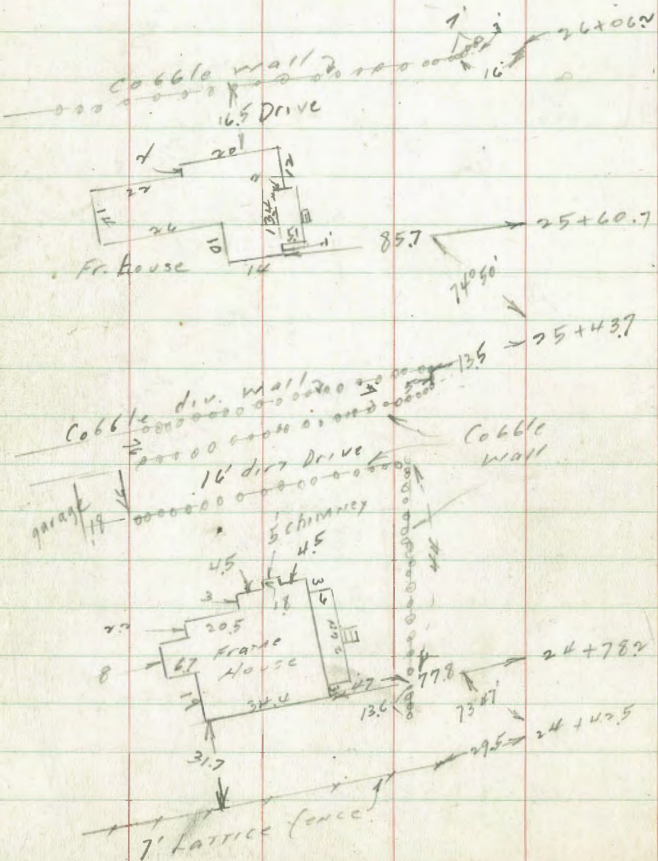 1'
26+06.2
Cobble wall 2
16'
16.5 Drive
2
20
12
22
14
26
10
14
Fr. house
85.7
25+60.7
74°50'
25+43.7
13.5
Cobble div. wall 2
Cobble
wall
16' dirt Drive
garage
18
16
5' chimney
4.5
4.5
3
18
3
20.5
8
6.7
Frame
House
19
34.4
47
77.8
24+78.2
13.6
73°47'
31.7
29.5
24+42.5
7' Lattice fence